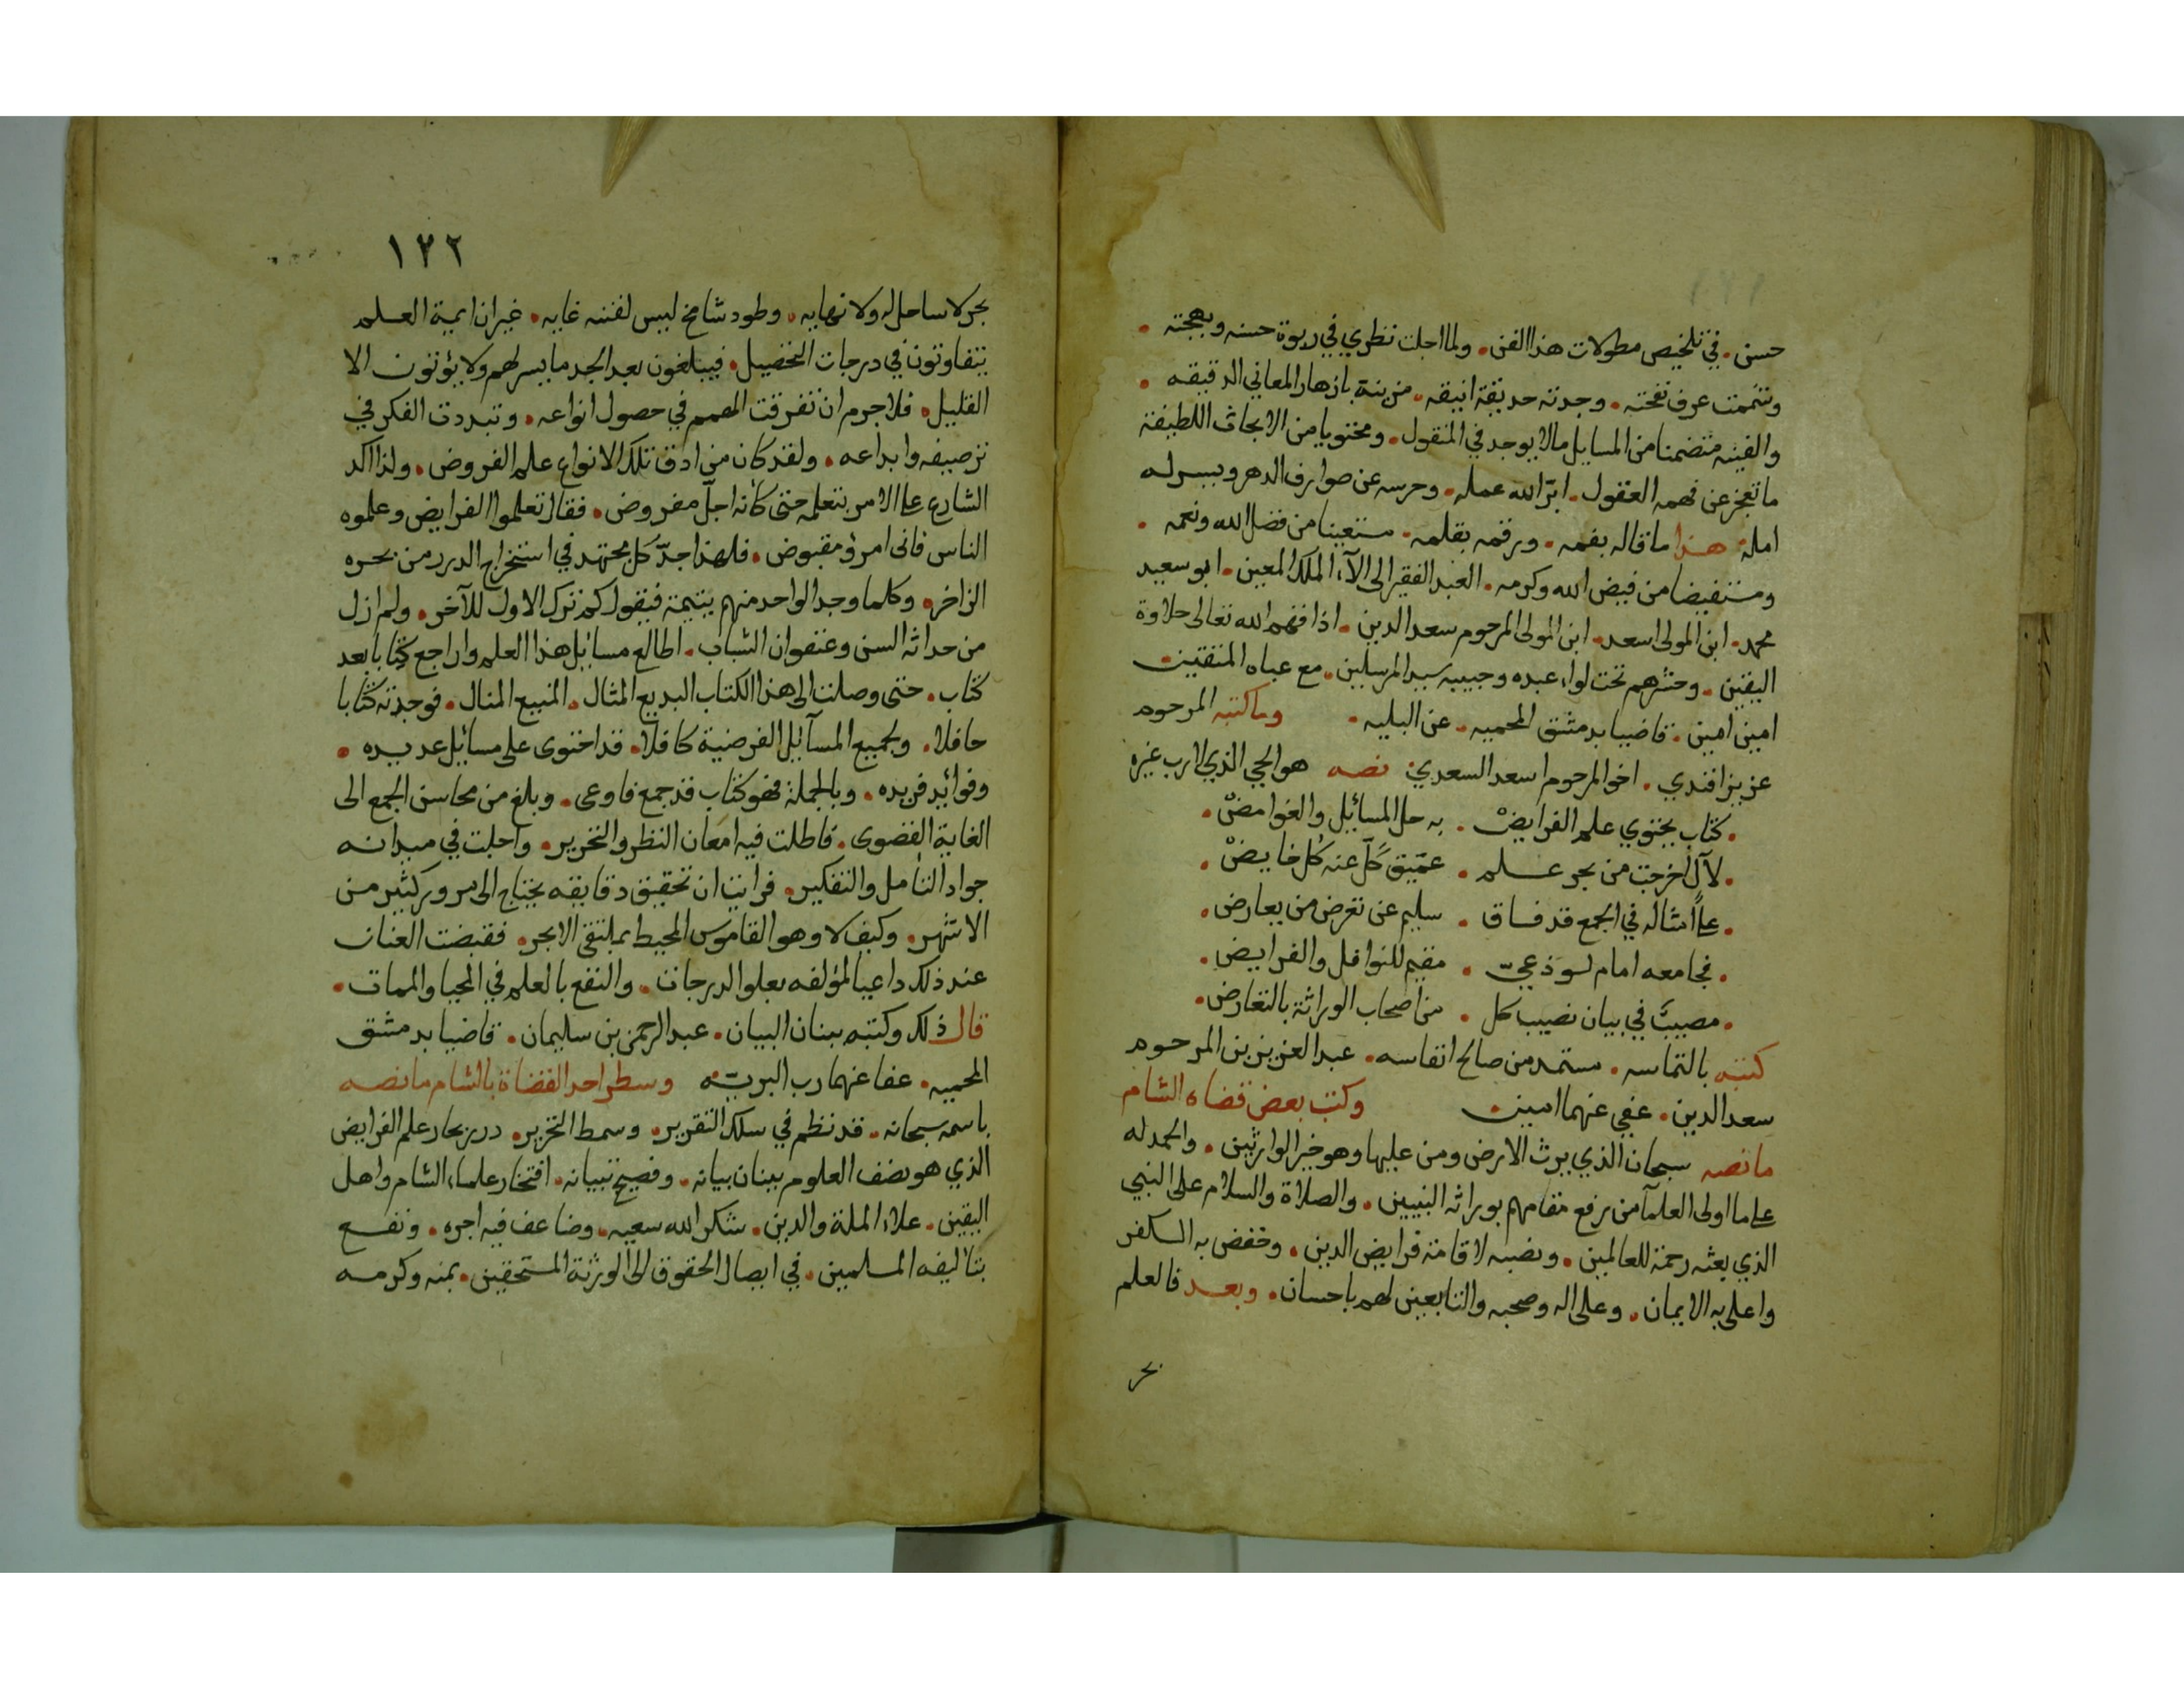 حسن . في تلخيص مطولات هذا الفن . ولما اجلت نظري في ربوة حسنه وبهجته .
وتنممت عرف نفحته . وجدته حديقة انيقه . مزينة بازهار المعاني الدقيقه .
والفيته متضمنا من المسايل مالا يوجد في المنقول . ومحتويا من الابحاث اللطيفة
ما تعجز عن فهمه العقول . ابرّ الله عمله . وحرسه عن صوارف الدهر ويسر له
امله هذا ما قاله بفمه . ورقمه بقلمه . مستعينا من فضل الله ونعمه .
ومستفيضا من فيض الله وكرمه . العبد الفقير الى الآء الملك المعين . ابو سعيد
محمد . ابن المولى اسعد . ابن المولى المرحوم سعد الدين . اذاقهم الله تعالى حلاوة
اليقين . وحشرهم تحت لواء عبده وحبيبه سيد المرسلين . مع عباه المتقين .
امين امين . قاضيا بدمشق المحميه . عن البليه . ومما كتبه المرحوم
عزيز افندي . اخو المرحوم اسعد السعدي نصه هو الحي الذي لا رب غيره
. كتاب يحتوي علم الفرايضْ . به حل المسائل والغوامضْ .
. لآل اخرجت من بحر علم . عميق كَلّ عنه كُل خايضْ .
. علا امثاله في الجمع قد فاق . سليم عن تعرض من يعارض .
. فجامعه امام لوذعيّ . مقيم للنوافل والفرايض .
. مصيبٌ في بيان نصيب كل . من اصحاب الوراثة بالتعارض .
كتبه بالتماسه . مستمد من صالح انفاسه . عبد العزيز بن المرحوم
سعد الدين . عفي عنهما امين . وكتب بعض قضاه الشام
ما نصه سبحان الذي يرث الارض ومن عليها وهو خير الوارثين . والحمد له
على ما اولى العلمآ من رفع مقامهم بوراثه النبيين . والصلاة والسلام على النبي
الذي بعثه رحمة للعالمين . ونصبه لاقامة فرايض الدين . وخفض به الكفر
واعلى به الايمان . وعلى اله وصحبه والتابعين لهم باحسان . وبعد فالعلم
بحر
١٢٢
بحر لا ساحل له ولا نهايه . وطود شامخ ليس لفننه غايه . غير ان ايمة العلم
يتفاوتون في درجات التحصيل . فيبلغون بعد الجد ما يسر لهم ولا يؤتون الا
القليل . فلا جرم ان تفرقت الهمم في حصول انواعه . وتبددت الفكر في
ترصيفه وابداعه . ولقد كان من ادق تلك الانواع علم الفروض . ولذا اكد
الشارع على الامر بتعلمه حتى كأنه اجلّ مفروض . فقال تعلموا الفرايض وعلموه
الناس فانى امرؤ مقبوض . فلهذا جدّ كل مجتهد في استخراج الدرر من بحره
الزاخر . وكلما وجد الواحد منهم يتيمة فيقول كم ترك الاول للآخر . ولم ازل
من حداثه السن وعنفوان الشباب . اطالع مسايل هذا العلم واراجع كتابا بعد
كتاب . حتى وصلت الى هذا الكتاب البديع المثال . المنيع المنال . فوجدته كتابا
حافلا . ولجميع المسآئل الفرضية كافلا . قد احتوى على مسائل عديده .
وفوائد فريده . وبالجملة فهو كتاب قد جمع فاوعى . وبلغ من محاسن الجمع الى
الغاية القصوى . فاطلت فيه امعان النظر والتحرير . واجلت في ميدانه
جواد التأمل والتفكير . فرايت ان تحقيق دقايقه يحتاج الى مرور كثير من
الاشهر . وكيف لا وهو القاموس المحيط بملتقى الابحر . فقبضت العنان
عند ذلك داعيا لمؤلفه بعلو الدرجات . والنفع بالعلم في المحيا والممات .
قال ذلك وكتبه ببنان البيان . عبد الرحمن بن سليمان . قاضيا بدمشق
المحميه . عفا عنهما رب البريّه وسطر احد القضاة بالشام ما نصه
باسمه سبحانه . قد نظم في سلك التقرير . وسمط التحرير . درر بحار علم الفرايض
الذي هو نصف العلوم ببنان بيانه . وفصيح تبيانه . افتخار علماء الشام واهل
اليقين . علاء الملة والدين . شكر الله سعيه . وضاعف فيه اجره . ونفع
بتاليفه المسلمين . في ايصال الحقوق الى الورثة المستحقين . بمنه وكرمه